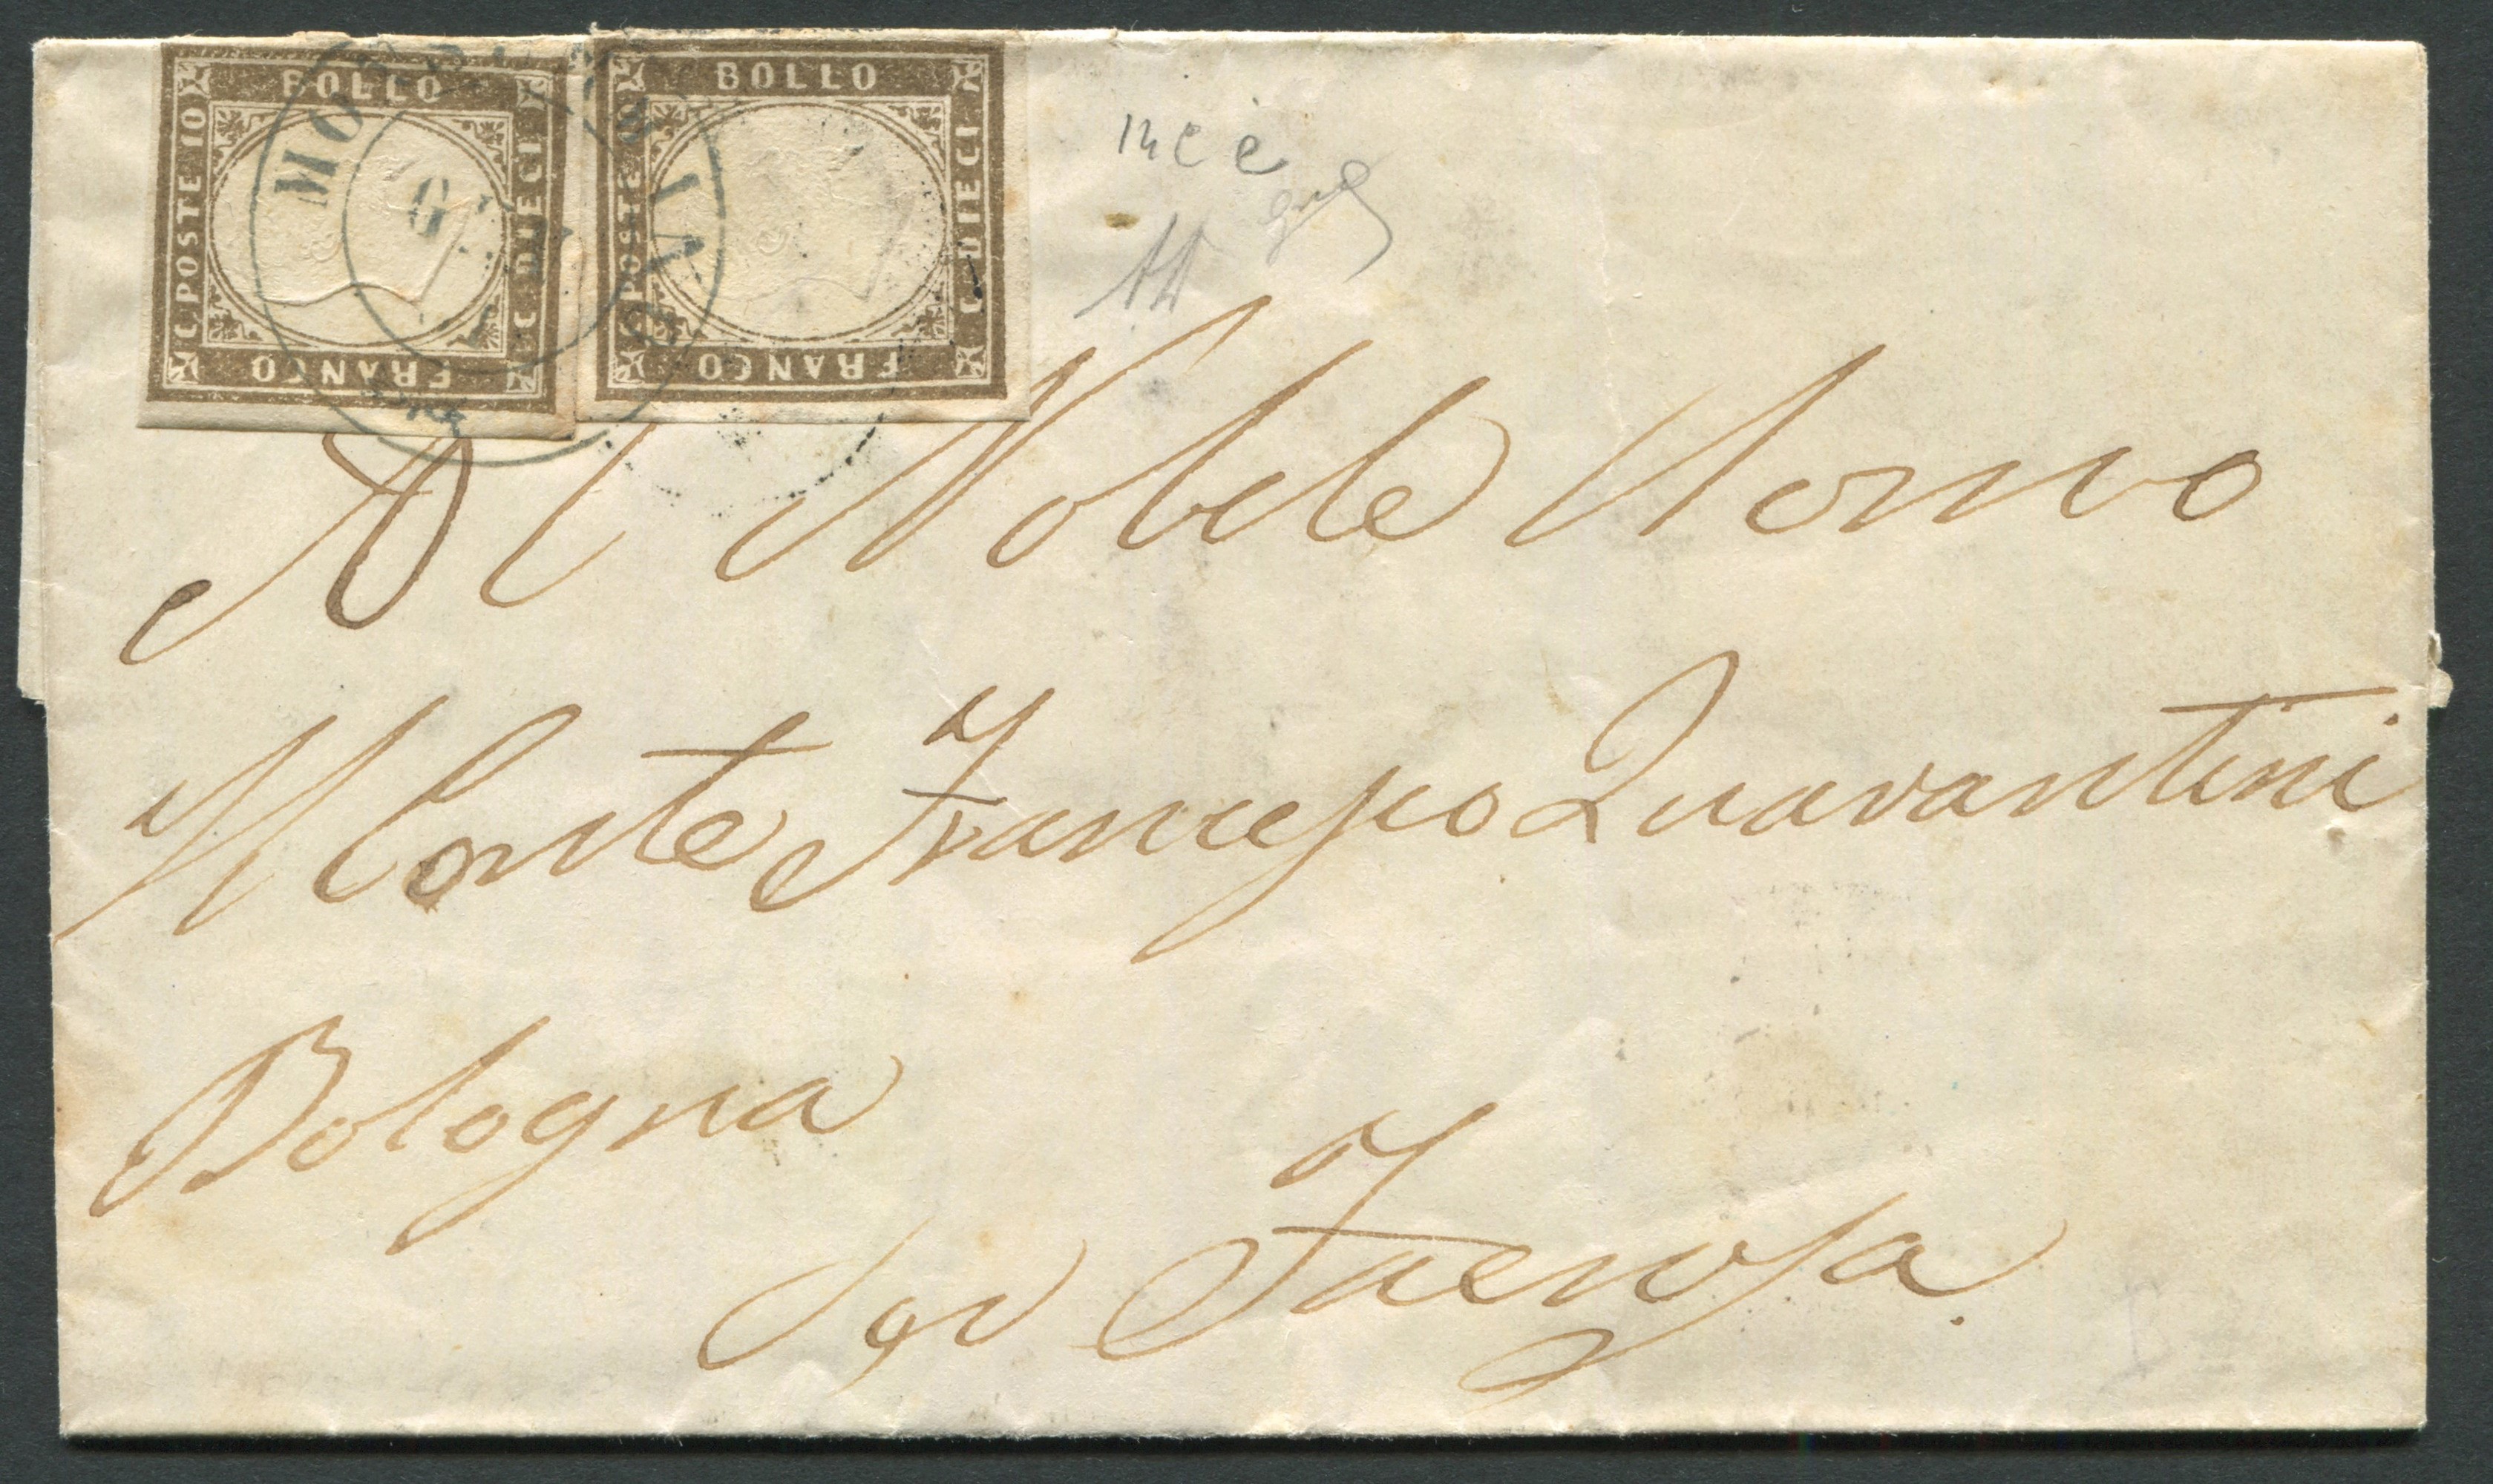 BOLLO
C. POSTE 10
C. DIECI
FRANCO
BOLLO
POSTE 10
C. DIECI
FRANCO
MO
G
Al Nobile Uomo
Il Conte Francesco Quarantini
Bologna
per Faenza